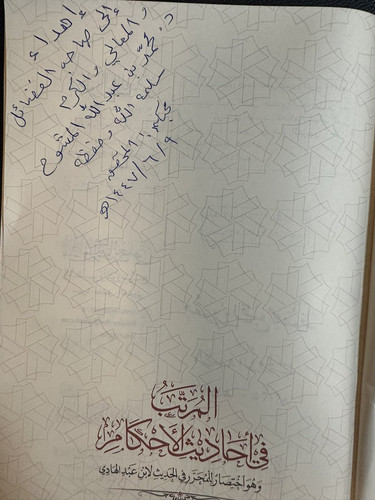 إهداء
إلى صاحب الفضائل
والمعالي والكرم
د. محمد بن عبد الله المشوح
سلمه الله وحفظه
محبكم: المحقق
١٤٤٧/٦/٩هـ
المرتب
في أحاديث الأحكام
وهو اختصار المحرر في الحديث لابن عبد الهادي